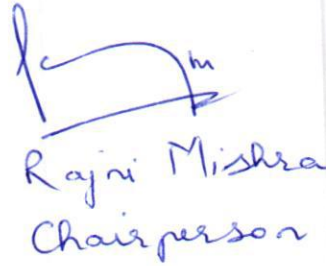 Rajni Mishra
Chairperson